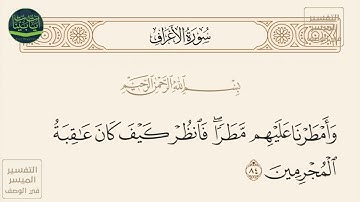 سُورَةُ الأَعْرَافِ
التفسير
الميسر
بِسْمِ اللَّهِ الرَّحْمَٰنِ الرَّحِيمِ
وَأَمْطَرْنَا عَلَيْهِم مَّطَرًا ۖ فَانظُرْ كَيْفَ كَانَ عَاقِبَةُ
الْمُجْرِمِينَ ٨٤
التفسير
الميسر
في الوصف